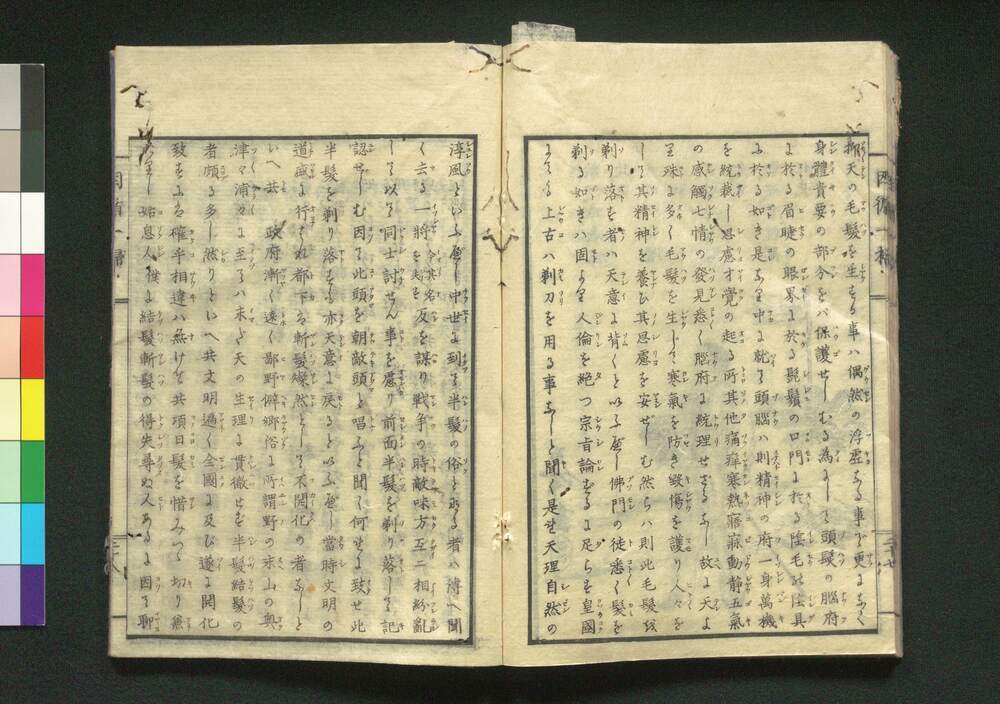 抑天の毛髪を生ずる事ハ偶然の浮霊なる事が更になく
身體貴要の部分をバ保護せしむる為にして頭髪の腦府
に於る眉睫の眼界に於る髭鬚の口門に於る陰毛の陰具
に於る如き是なり中に就て頭腦ハ則精神の府一身萬機
を統裁し思慮才覚の起る所其他痛痒寒熱寤寐動静五氣
の感觸七情の發見悉く腦府に統理せざるなし故に天よ
り殊に多く毛髪を生じて寒氣を防き毀傷を護り人々を
して其精神を養ひ其思慮を安せしむ然らハ則此毛髪を
剃り落す者ハ天意に背くと以ふべし佛門の徒悉く髪を
剃る如きハ固より人倫を絶つ宗旨論ずるに足らず皇國
にても上古ハ剃刀を用る事なしと聞く是ぞ天理自然の
淳風といふべし中世に到て半髪の俗と成る者ハ傳へ聞
く去る一将 今其名を失す 反を謀り戦争の時敵味方互ニ相紛亂
して以て同士討せん事を慮り前面半髪を剃り落して記
認せしむ因て此頭を朝敵頭と唱ふと聞く何ぞに致せ此
半髪を剃り落すも亦天意に戻ると以ふべし當時文明の
道盛に行はれ都下なる斬髪燦然として不開化の者なしと
いへ共 政府漸く遠く鄙野僻郷俗に所謂野の末山の奥
津々浦々に至てハ未だ天の生理に貫徹せず半髪結髪の
者頗る多し然りといへ共文明遍く全國に及び遂に開化
致すにハ確乎相違ハ無けれど共頃日髪を惜みつつ切り兼
姑息人 僕に結髪斬髪の得失尋ぬ人あるに因て聊